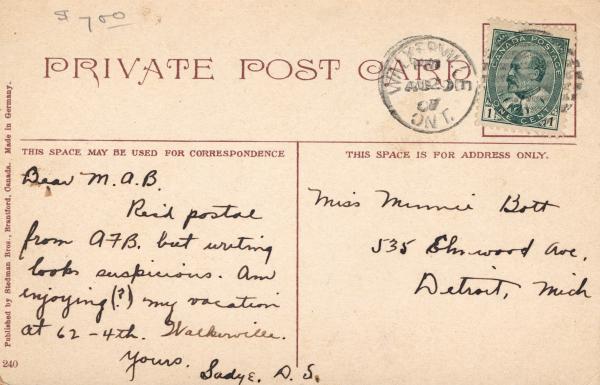 $7.00
PRIVATE POST CARD
WALKERVILLE
AU 20
07
ONT.
CANADA POSTAGE
1 ONE CENT 1
THIS SPACE MAY BE USED FOR CORRESPONDENCE
THIS SPACE IS FOR ADDRESS ONLY.
Dear M.A.B.
Rec'd postal
from A7B. but writing
looks suspicious. Am
enjoying(?) my vacation
at 62-4th. Walkerville.
Yours.
Sadye. D. S.
Miss Minnie Bott
535 Elmwood Ave,
Detroit, Mich
Published by Stedman Bros., Brantford, Canada. Made in Germany.
240